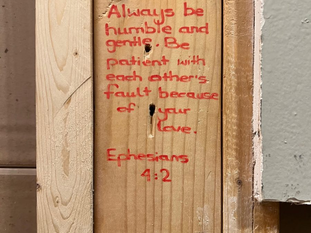 Always be
humble and
gentle. Be
patient with
each other's
fault because
of your
love.
Ephesians
4:2